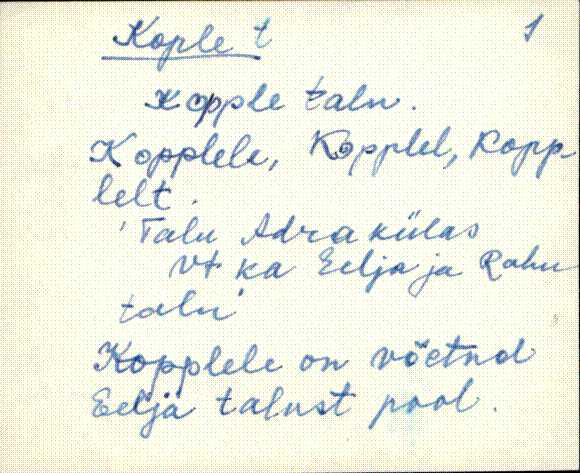 Kople t 1
Kopple talu.
Kopplele, Kopplel, Kopp
lelt.
'Talu Adra külas
Vt ka Eelja ja Rahu
talu'
Kopplele on võetnd
Eelja talust pool.